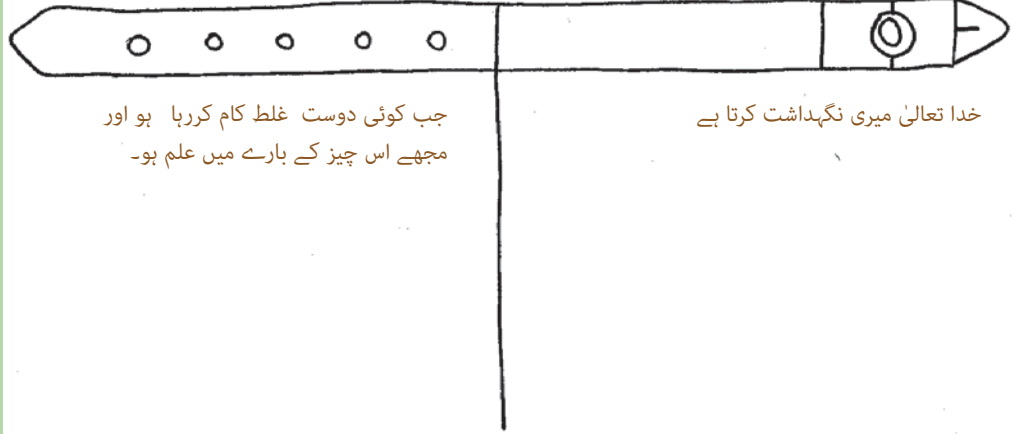 خدا تعالیٰ میری نگہداشت کرتا ہے
جب کوئی دوست غلط کام کررہا ہو اور
مجھے اس چیز کے بارے میں علم ہو۔